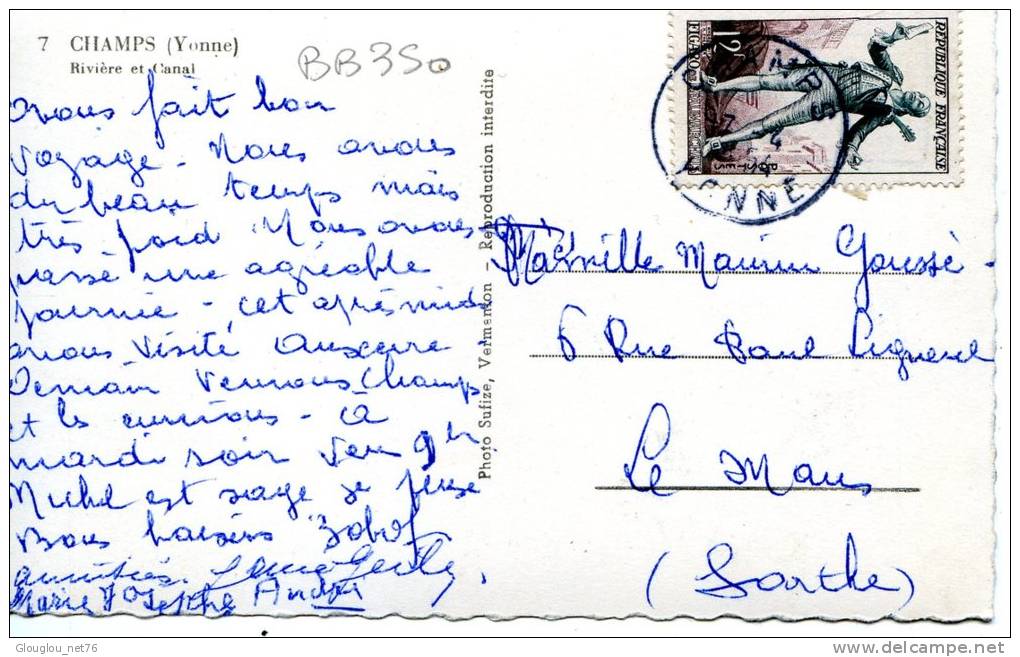 7 CHAMPS (Yonne)
Rivière et Canal
BB350
avons fait bon
voyage - Nous avons
du beau temps mais
très froid Nous avons
passé une agréable
journée - cet après midi
avons visité Auxerre
Demain verrons Champs
et les environs - à
mardi soir vers 9h
Michel est sage je pense
Bons baisers
amitiés.
Marie Josèphe André
Photo Sufize, Vermenton - Reproduction interdite
12f
FIGARO
RÉPUBLIQUE FRANÇAISE
POSTES
CHAMPS
YONNE
Famille Maurice Goussé -
6 Rue Paul Ligneul
Le Mans
(Sarthe)
Glouglou_net76
www.delcampe.net